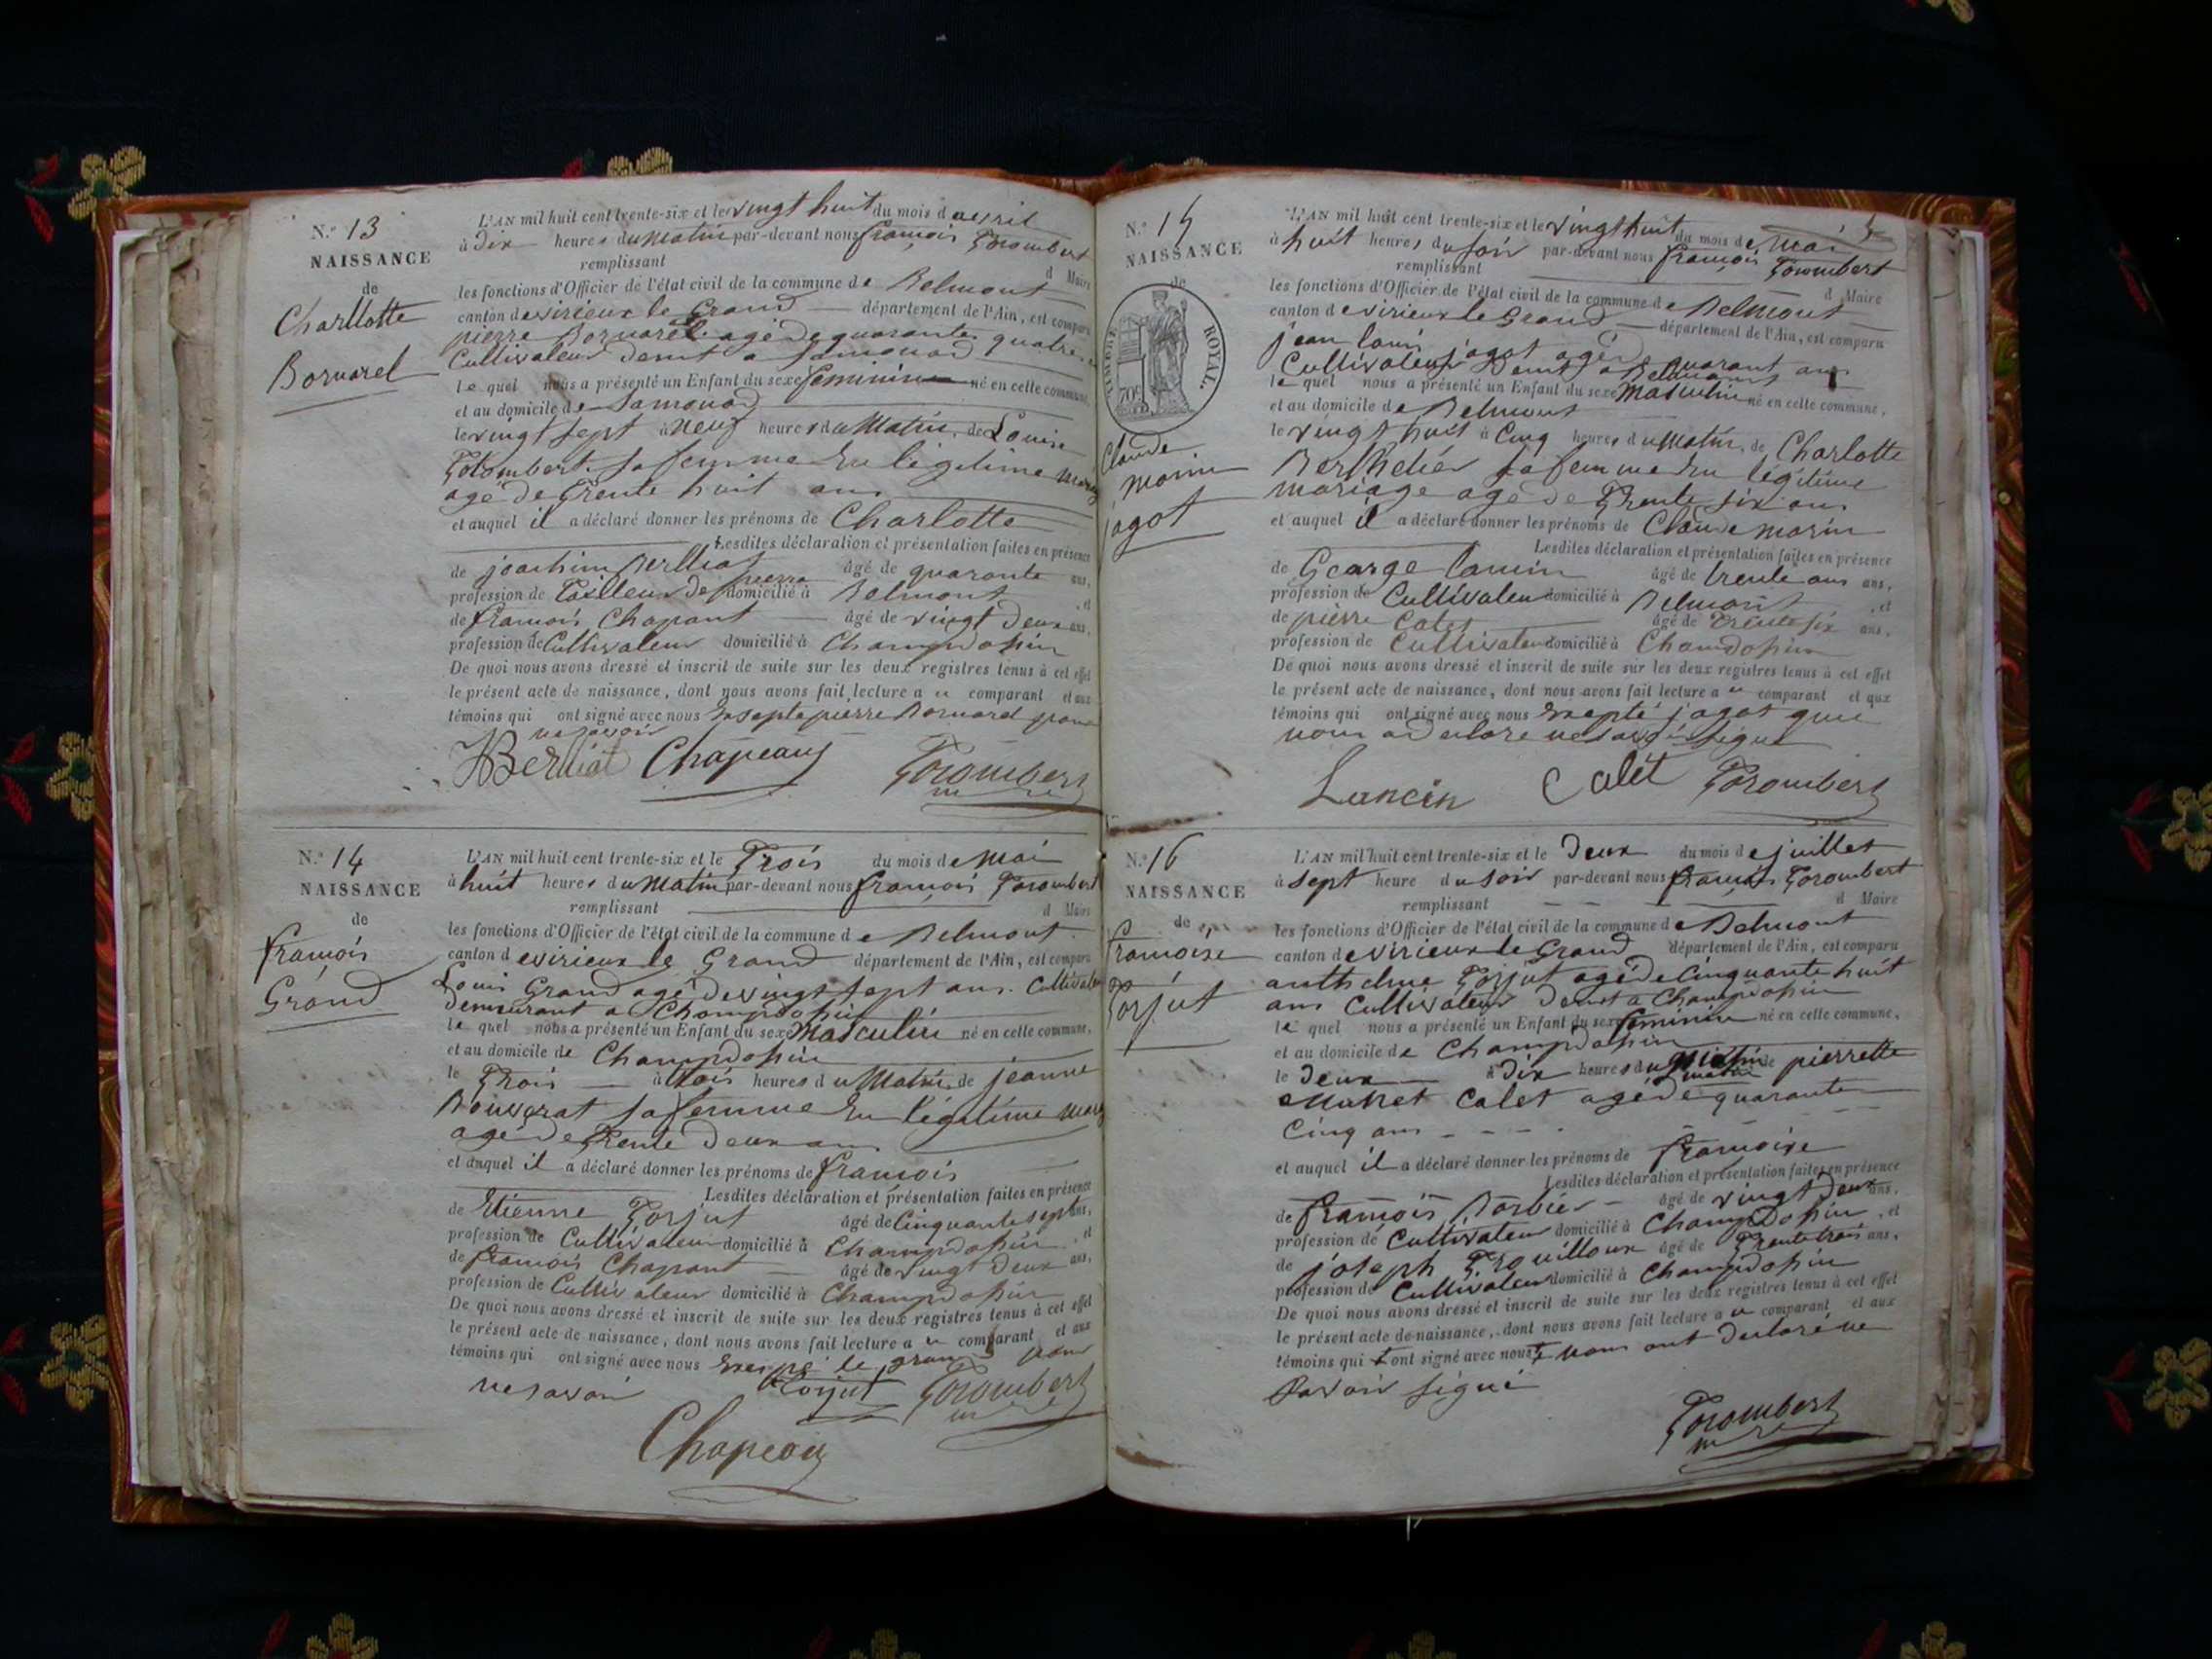 N.º 13
NAISSANCE
de
Charllotte
Bornarel
L'AN mil huit cent trente-six et le vingt huit du mois d avril
à dix heures du matin par-devant nous françois Torombert
remplissant d Maire
les fonctions d'Officier de l'état civil de la commune de Belmont
canton de virieux le Grand département de l'Ain, est comparu
pierre Bornarel agé de quarante quatre
Cultivateur demt a Samonod
le quel nous a présenté un Enfant du sexe feminin né en cette commune,
et au domicile de Samonod
le vingt sept à neuf heures du Matin, de Louise
Torombert sa femme En légitime
agé de Trente huit ans
et auquel il a déclaré donner les prénoms de Charlotte
Lesdites déclaration et présentation faites en présence
de joachim Berlliat âgé de quarante ans,
profession de Tailleur de pierre domicilié à Belmont , et
de françois Chapant âgé de vingt deux ans,
profession de Cultivateur domicilié à Champdossin
De quoi nous avons dressé et inscrit de suite sur les deux registres tenus à cet effet
le présent acte de naissance, dont nous avons fait lecture a u comparant et aux
témoins qui ont signé avec nous Exsepte pierre Bornarel
ne savoir
Berlliat Chapeaux Torombert
N.º 14
NAISSANCE
de
françois
Grand
L'AN mil huit cent trente-six et le Trois du mois de Mai
à huit heures du Matin par-devant nous françois Torombert
remplissant d Maire
les fonctions d'Officier de l'état civil de la commune d e Belmont
canton d e virieux le Grand département de l'Ain, est comparu
Louis Grand agé de vingt sept ans Cultivateur
demeurant a Champdossin
le quel nous a présenté un Enfant du sexe Masculin né en cette commune,
et au domicile de Champdossin
le Trois à trois heures du Matin, de jeanne
Bouvrat sa femme En légitime
agé de Trente deux ans
et auquel il a déclaré donner les prénoms de françois
Lesdites déclaration et présentation faites en présence
de Etienne Torjut âgé de Cinquante sept ans,
profession de Cultivateur domicilié à Champdossin , et
de françois Chapant âgé de vingt deux ans,
profession de Cultivateur domicilié à Champdossin
De quoi nous avons dressé et inscrit de suite sur les deux registres tenus à cet effet
le présent acte de naissance, dont nous avons fait lecture a u comparant et aux
témoins qui ont signé avec nous le grand pour
ne savoir Torjut Torombert
Chapeaux
N.º 15
NAISSANCE
de
TIMBRE ROYAL.
70c
Claude
marin
jagot
L'AN mil huit cent trente-six et le vingt huit du mois de Mai
à huit heures du soir par-devant nous françois Torombert
remplissant d Maire
les fonctions d'Officier de l'état civil de la commune d e Belmont
canton d e virieux le Grand département de l'Ain, est comparu
jean louis jagot agé de quarant ans
Cultivateur Demt a Belmont
le quel nous a présenté un Enfant du sexe Masculin né en cette commune,
et au domicile de Belmont
le vingt huit à Cinq heures du Matin, de Charlotte
Berthelier sa femme En légitime
mariage agé de Trente six ans
et auquel il a déclaré donner les prénoms de Claude marin
Lesdites déclaration et présentation faites en présence
de George âgé de trente ans ans,
profession de Cultivateur domicilié à Belmont , et
de pierre Calet âgé de trente six ans,
profession de Cultivateur domicilié à Champdossin
De quoi nous avons dressé et inscrit de suite sur les deux registres tenus à cet effet
le présent acte de naissance, dont nous avons fait lecture a u comparant et aux
témoins qui ont signé avec nous Exepté jagot que
nous a declare ne savoir signé
Lancin Calet Torombert
N.º 16
NAISSANCE
de
francoise
Torjut
L'AN mil huit cent trente-six et le Deux du mois d e juillet
à sept heure du soir par-devant nous françois Torombert
remplissant d Maire
les fonctions d'Officier de l'état civil de la commune d e Belmont
canton d e virieux le Grand département de l'Ain, est comparu
anthelme Torjut agé de Cinquante huit
ans Cultivateur demt a Champdossin
le quel nous a présenté un Enfant du sexe feminin né en cette commune,
et au domicile de Champdossin
le Deux à Dix heures du matin de pierrette
Calet agé de quarante
Cinq ans
et auquel il a déclaré donner les prénoms de françoise
Lesdites déclaration et présentation faites en présence
de françois Barbier âgé de vingt deux ans,
profession de Cultivateur domicilié à Champdossin , et
de joseph Trouilloux âgé de Trente trois ans,
profession de Cultivateur domicilié à Champdossin
De quoi nous avons dressé et inscrit de suite sur les deux registres tenus à cet effet
le présent acte de naissance, dont nous avons fait lecture a u comparant et aux
témoins qui ont signé avec nous nous ont declaré ne
savoir signé
Torombert